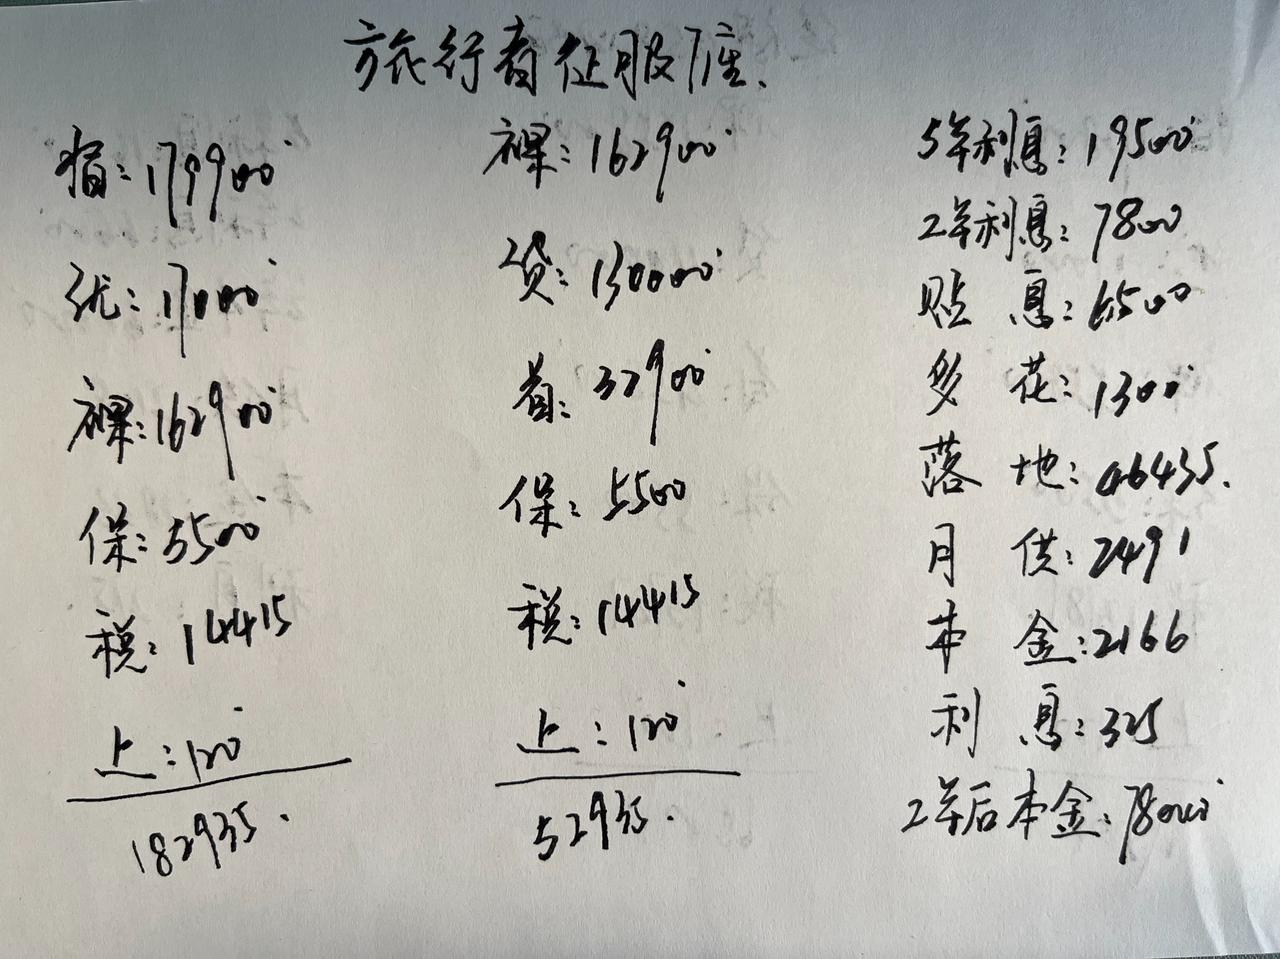 旅行者征服7座.
指:179900
优:17000
裸:162900
保:5500
税:14415
上:120
182935.
裸:162900
贷:130000
首:32900
保:5500
税:14415
上:120
52935.
5年利息:19500
2年利息:7800
贴息:6500
多花:1300
落地:46435.
月供:2491
本金:2166
利息:325
2年后本金:78000